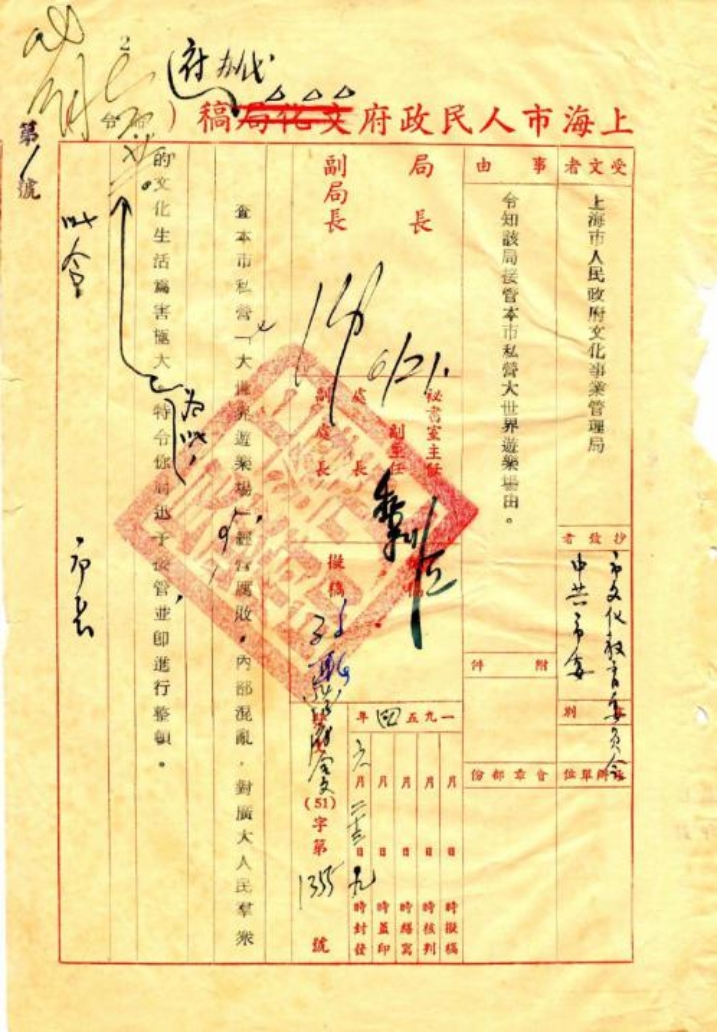 上海市人民政府文化局稿
府
受文者
上海市人民政府文化事業管理局
事由
令知該局接管本市私營大世界遊樂場由。
抄致者
市文化教育委員會
中共市委
附件
別
會章部份
局長
副局長
6/21
秘書室主任
副主任
處長
副處長
擬稿
一九五四年
月 日 時擬稿
月 日 時核判
月 日 時繕寫
月 日 時蓋印
六月 日 九時封發
(51)字第1355號
查本市私營「大世界遊樂場」經營腐敗,內部混亂,對廣大人民羣衆
的文化生活爲害極大
爲此,
特令你局迅予接管,並卽進行整頓。
此令
市長
第1號